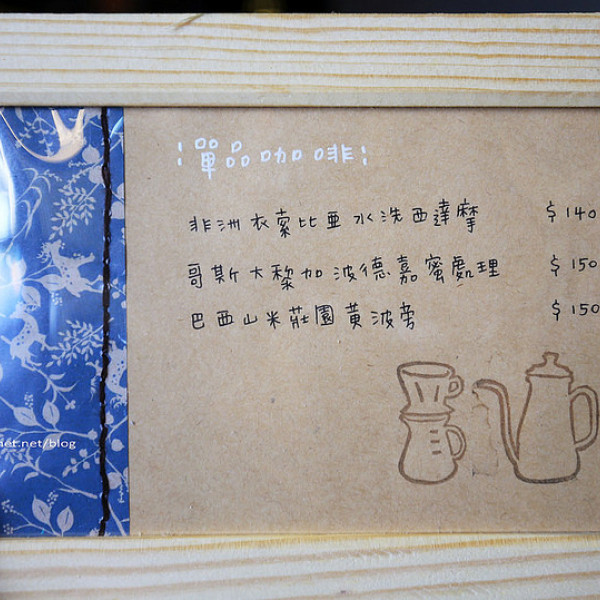 :單品咖啡:
非洲衣索比亞水洗西達摩 $140
哥斯大黎加波德嘉蜜處理 $150
巴西山米莊園黃波旁 $150
net.net/blog